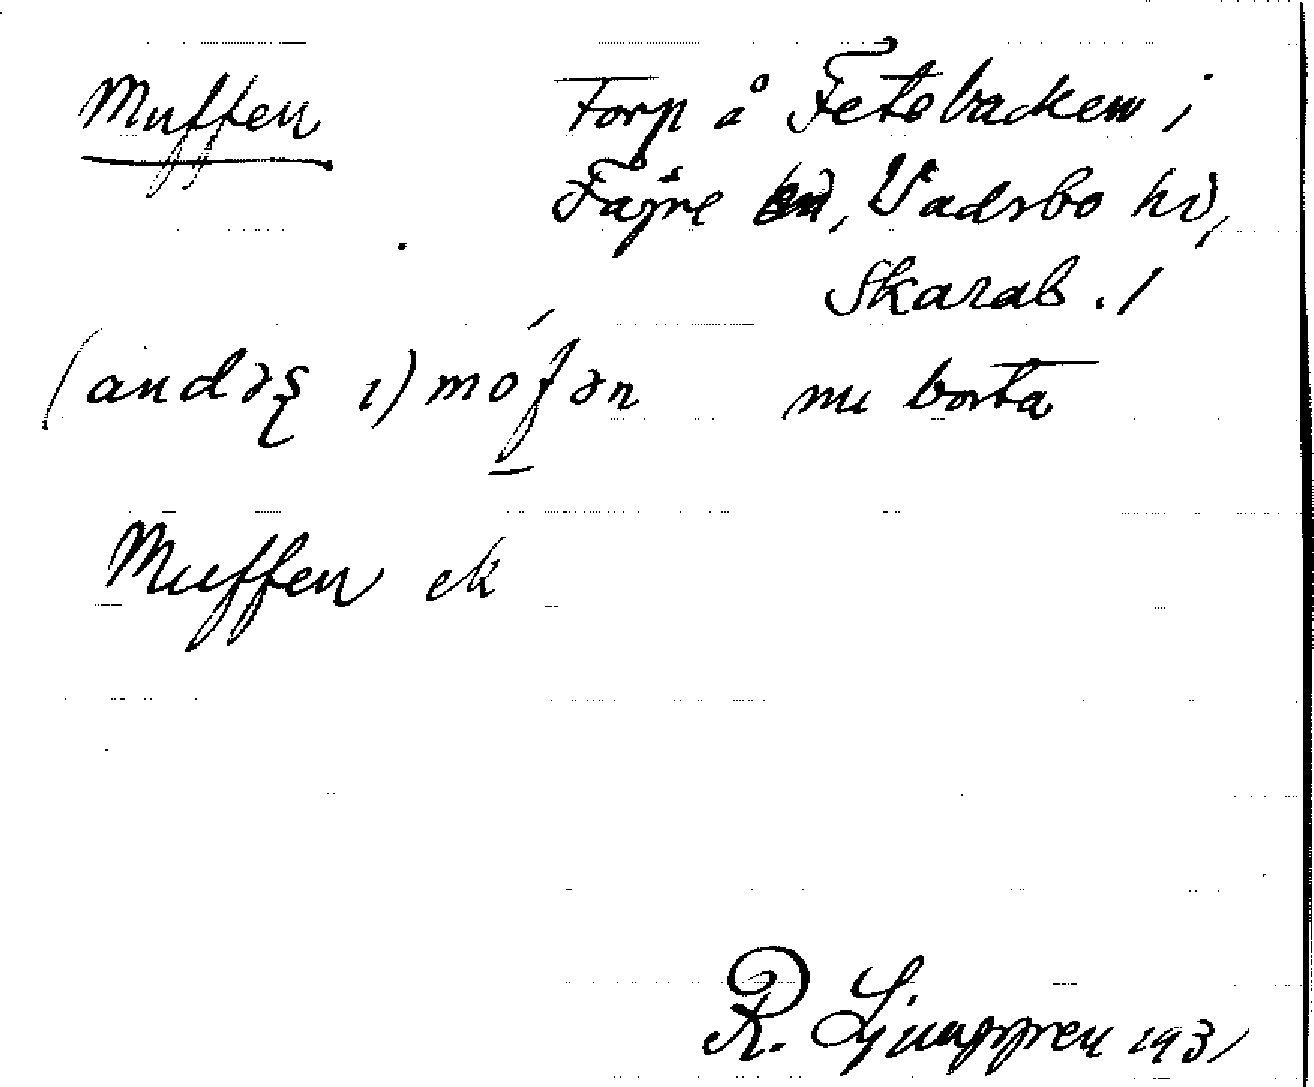 Muffen Torp å Fetebacken i
Fägre sn, Vadsbo hd,
Skarab. l
(andəş ı) mófən nu borta
Muffen ek
R. Ljunggren 1931